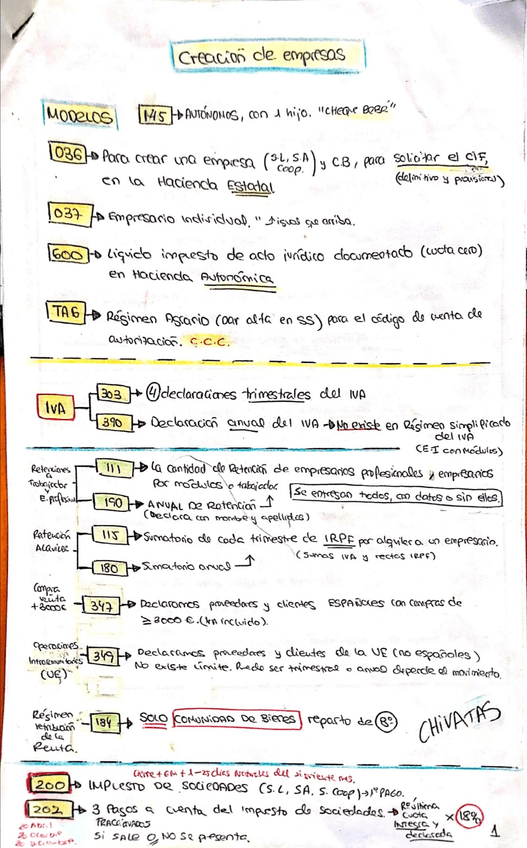 Creación de empresas
MODELOS
145 → AUTÓNOMOS, con 1 hijo. "CHEQUE BEBÉ"
036 → Para crear una empresa (S.L, S.A Coop.) y CB, para solicitar el CIF,
en la Hacienda Estatal (definitivo y provisional)
037 → Empresario individual. " Igual que arriba.
600 → Líquido impuesto de acto jurídico documentado (cuota cero)
en Hacienda Autonómica
TA6 → Régimen Agrario (dar alta en SS) para el código de cuenta de
autorización. C.C.C.
IVA
303 → 4 declaraciones trimestrales del IVA
390 → Declaración anual del IVA → No existe en Régimen Simplificado
del IVA
(EI con módulos)
Retenciones a Trabajador y E.profesional
111 → La cantidad de Retención de empresarios profesionales y empresarios
por módulos o trabajador.
Se entregan todos, con datos o sin ellos.
190 → ANUAL DE RETENCIÓN
(Declara con nombre y apellidos)
Retención Alquiler
115 → Sumatorio de cada trimestre de IRPF por alquiler a un empresario.
(Sumas IVA y restas IRPF)
180 → Sumatorio anual
Compra venta +3000€
347 → Declaramos proveedores y clientes ESPAÑOLES con compras de
≥ 3000 €. (IVA incluido).
Operaciones Intracomunitarias (UE)
349 → Declaramos proveedores y clientes de la UE (no españoles)
No existe límite. Puede ser trimestral o anual depende el movimiento.
Régimen retribución de la Renta.
184 → SOLO COMUNIDAD DE BIENES reparto de Bº
CHIVATAS
Cierre + 6M + 1-25 días Naturales del siguiente mes.
200 → IMPUESTO DE SOCIEDADES (S.L, SA, S. Coop) → 1º PAGO.
202 → 3 Pagos a cuenta del impuesto de sociedades. → Pe última cuota íntegra y declarada × 18%
FRACCIONADOS
20 Abril
20 Octubre
20 Diciembre.
Si SALE 0, NO Se presenta.
1